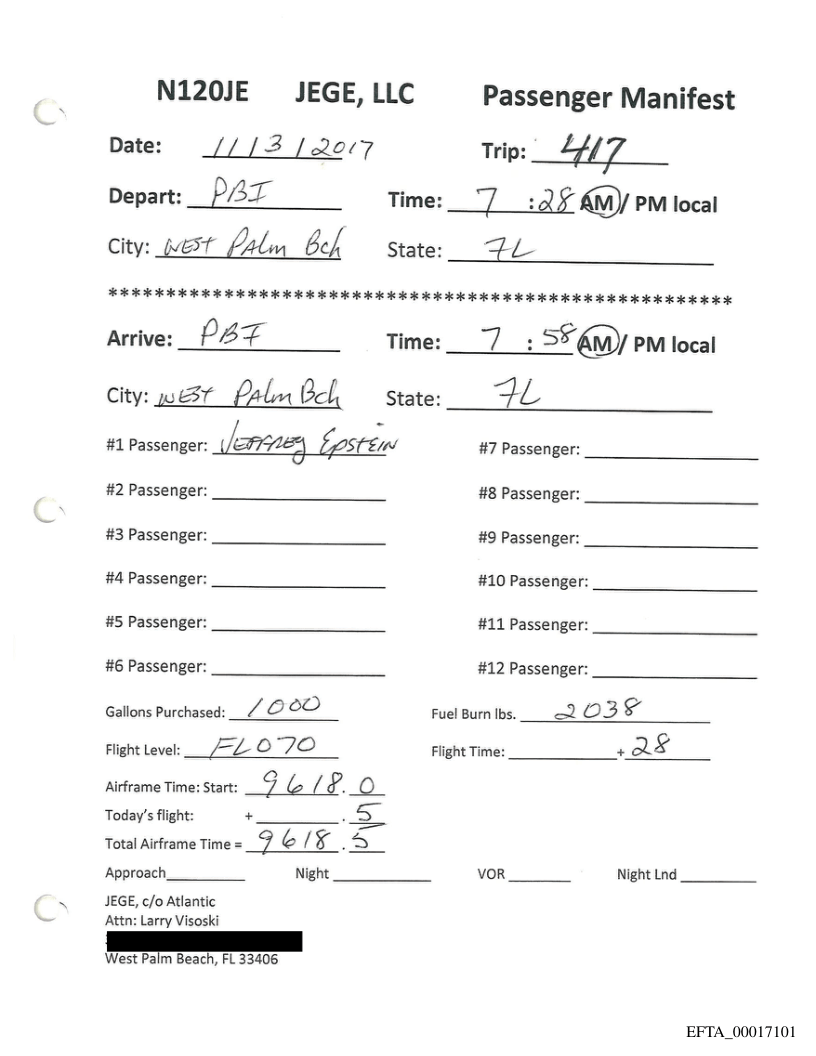 N120JE JEGE, LLC Passenger Manifest
Date: 11/3/2017 Trip: 417
Depart: PBI Time: 7 :28 AM/ PM local
City: WEST PAlm Bch State: FL
******************************************************
Arrive: PBI Time: 7 : 58 AM/ PM local
City: WEST PAlm Bch State: FL
#1 Passenger: JEFFREY EPSTEIN #7 Passenger:
#2 Passenger: #8 Passenger:
#3 Passenger: #9 Passenger:
#4 Passenger: #10 Passenger:
#5 Passenger: #11 Passenger:
#6 Passenger: #12 Passenger:
Gallons Purchased: 1000 Fuel Burn lbs. 2038
Flight Level: FL070 Flight Time: + 28
Airframe Time: Start: 9618.0
Today's flight: + .5
Total Airframe Time = 9618.5
Approach Night VOR Night Lnd
JEGE, c/o Atlantic
Attn: Larry Visoski
West Palm Beach, FL 33406
EFTA_00017101